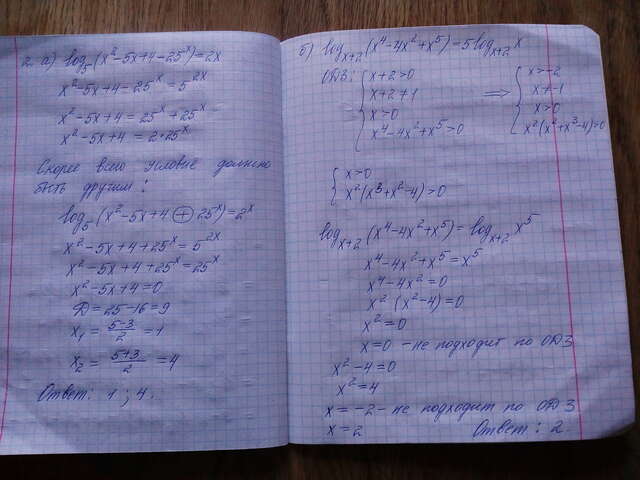 2. а) log₅(x²-5x+4-25ˣ)=2x
x²-5x+4-25ˣ=5²ˣ
x²-5x+4=25ˣ+25ˣ
x²-5x+4=2*25ˣ
Скорее всего условие должно
быть другим:
log₅(x²-5x+4⊕25ˣ)=2ˣ
x²-5x+4+25ˣ=5²ˣ
x²-5x+4+25ˣ=25ˣ
x²-5x+4=0
D=25-16=9
x₁=(5-3)/2=1
x₂=(5+3)/2=4
Ответ: 1; 4.
б) logₓ₊₂(x⁴-4x²+x⁵)=5logₓ₊₂x
ОДЗ: { x+2>0 ⟹ { x>-2
x+2≠1 x≠-1
x>0 x>0
x⁴-4x²+x⁵>0 x²(x²+x³-4)>0
{ x>0
x²(x³+x²-4)>0
logₓ₊₂(x⁴-4x²+x⁵)=logₓ₊₂x⁵
x⁴-4x²+x⁵=x⁵
x⁴-4x²=0
x²(x²-4)=0
x²=0
x=0 -не подходит по ОДЗ
x²-4=0
x²=4
x=-2- не подходит по ОДЗ
x=2 Ответ: 2